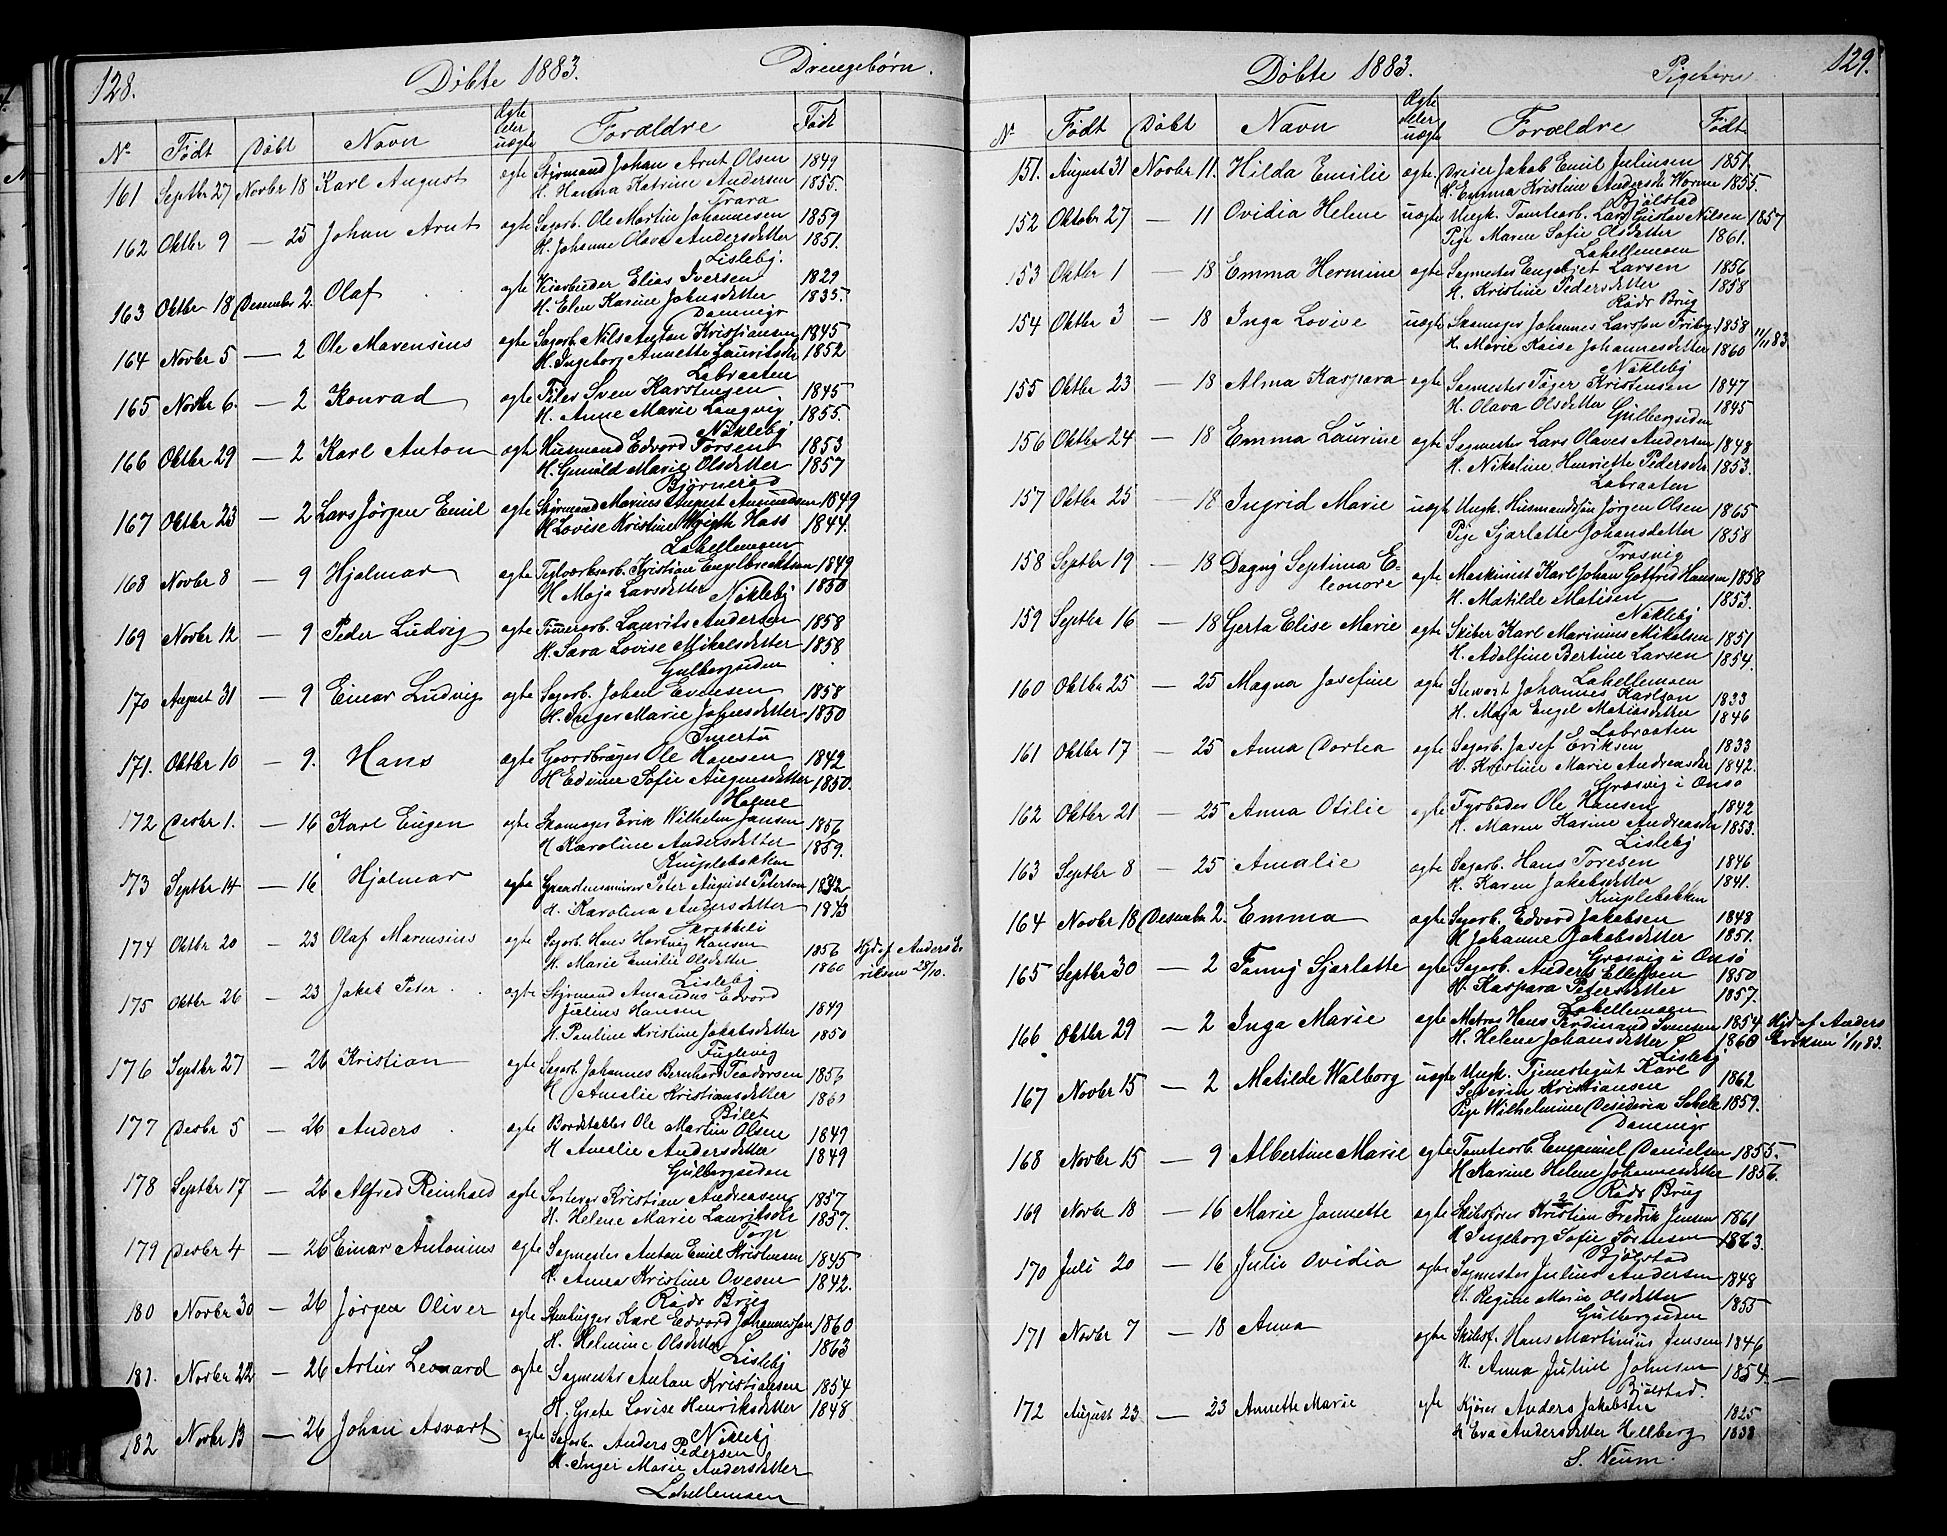 128.
Døbte 1883.
Drengebørn.
No. Født Døbt Navn Ægte eller uægte Forældre Født
161 Septbr 27 Novbr 18 Karl August ægte Styrmand Johan Arnt Olsen 1849
H. Hanna Katrine Andersen 1855.
Trara
162 Oktbr 9 — 25 Johan Arnt ægte Sagarb. Ole Martin Johannesen 1859
H. Johanne Olava Andersdetter 1851.
Lisleby.
163 Oktbr 18 Desember 2. Olaf ægte Elias Iversen 1829
H. Elen Karine Johnsdetter 1835.
Dammyr
164 Novbr 5 — 2 Ole Marensius ægte Sagarb. Nils Anton Kristiansen 1845
H. Ingeborg Annette Lauritsdtr 1852
Labraaten
165 Novbr 6. — 2 Konrad ægte Sven Karstensen 1845
H. Anne Marie Langvig 1855.
Nøkleby
166 Oktbr 29 — 2 Karl Anton ægte Husmand Edvord Torsen 1853
H. Gunild Marie Olsdetter 1857
Bjørnerød
167 Oktbr 23 — 2 Lars Jørgen Emil ægte Styrmand Marius August Amundsen 1849
H. Lovise Kristine Hass 1844.
Lahellemoen
168 Novbr 8 — 9 Hjalmar ægte Teglværksarb. Kristian Engelbrecktsen 1849
H. Maja Larsdetter 1850
Nøkleby
169 Novbr 12 — 9 Peder Ludvig ægte Tømmerarb. Laurits Andersen 1858
H. Sara Lovise Mikelsdetter 1858
Gulbergsiden
170 August 31 — 9 Einar Ludvig ægte Sagarb. Johan Evensen 1858
H. Inger Marie Johnsdetter 1850
Smertu
171. Oktbr 10 — 9. Hans ægte Gaardbruger Ole Hansen 1842
H. Edvine Sofie Augensdetter 1850.
Holme
172 Desbr 1. — 16 Karl Eugen ægte Skomager Erik Wilhelm Jansen 1856
H. Karoline Andersdetter 1859.
Kniplebakken
173 Septbr 14 — 16 Hjalmar ægte Peter August Peterson 1832
H. Karolina Andersdetter 1843
174 Oktbr 20 — 23 Olaf Marensius ægte Sagarb. Hans Hartvig Hansen 1856 Hjd af Anders E-
H. Marie Emilie Olsdetter 1860 riksen 28/10.
Lisleby
175 Oktbr 26 — 23 Jakob Peter ægte Styrmand Amandus Edvord
Julius Hansen 1849
H. Pauline Kristine Jakobsdetter 1850
Fuglevig
176 Septbr 27 — 26 Kristian ægte Sagarb. Johannes Bernhard Teodorsen 1856
H. Amalie Kristiansdetter 1860
Bilet
177 Desbr 5 — 26 Anders ægte Bordstabler Ole Martin Olsen 1849
H. Amalie Andersdetter 1849
Gulbergsiden
178 Septbr 17 — 26 Alfred Reinhard ægte Sorterer Kristian Andreasen 1857
H. Helene Marie Lauritsdtr 1857.
Torp
179 Desbr 4 — 26 Einar Antonius ægte Sagmester Anton Emil Kristensen 1845
H. Anna Kristine Ovesen 1842.
Røds Brug
180 Novbr 30 — 26 Jørgen Oliver ægte Stenhugger Karl Edvord Johannessen 1860
H. Helmine Olsdetter 1863
Lisleby
181. Novbr 22 — 26 Artur Leonard ægte Sagmester Anton Kristiansen 1854
H. Grete Lovise Henriksdetter 1848
Nøkleby
182 Novbr 13 — 26 Johan Asvart ægte Sagarb. Anders Pedersen
H. Inger Marie Andersdetter
Lahellemoen
129.
Døbte 1883.
Pigebørn
No Født Døbt Navn Ægte eller uægte Forældre Født
151. August 31 Novbr 11. Hilda Emilie ægte. Dreier Jakob Emil Julinsen 1851.
H. Emma Kristine Andersdt. Worme 1855.
Bjølstad
152 Oktobr 27 — 11 Ovidia Helene uægte Ungk. Tomtearb. Lars Gustav Nilsen 1857
Pige Maren Sofie Olsdetter 1861.
Lahellemoen
153 Oktbr 1 — 18 Emma Hermine ægte Sagmester Engebret Larsen 1856
H. Kristine Pedersdetter 1858
Røds Brug
154 Oktbr 3 — 18 Inga Lovise uægte Skomager Johannes Larsson Friberg 1858 11/11 83
H. Marie Kaise Johannesdetter 1860
Nøkleby
155 Oktbr 23 — 18 Alma Kaspara ægte Sagmester Tøger Kristensen 1847
H. Olava Olsdetter 1845
Gulbergsiden
156 Oktbr 24 — 18 Emma Laurine ægte Sagmester Lars Olaves Andersen 1848
H. Nikoline Henriette Pedersdtr 1853.
Labraaten
157 Oktbr 25 — 18 Ingrid Marie uægte Ungk. Husmandssøn Jørgen Olsen 1865
Pige Sjarlotte Johansdetter 1858
Trosvig
158 Septbr 19 — 18 Dagny Septima E-
leonore ægte Maskinist Karl Johan Gotfred Hansen 1858
H. Matilde Matisen 1853.
Nøkleby
159 Septbr 16 — 18 Gerta Elise Marie ægte Skiber Karl Marinius Mikelsen 1851
H. Adolfine Bertine Larsen 1854.
Lahellemoen
160 Oktbr 25 — 25 Magna Josefine ægte Stewart Johannes Karlson 1833
H. Maja Engel Matiasdetter 1846
Labraaten
161 Oktbr 17 — 25 Anna Dortea ægte Sagarb. Josef Eriksen 1833
H. Kristine Marie Andreasdtr 1842.
Græsvig i Onsø
162 Oktbr 21 — 25 Anna Otilie ægte Fyrbøder Ole Hansen 1842
H. Maren Karine Andreasdtr 1853.
Lisleby
163 Septbr 8 — 25 Amalie ægte Sagarb. Hans Toresen 1846
H. Karen Jakobsdetter 1841.
Kniplebakken
164 Novbr 18 Desember 2. Emma ægte Sagarb. Edvord Jakobsen 1848
H. Johanne Jakobsdetter 1851.
Græsvig i Onsø
165 Septbr 30 — 2 Fanny Sjarlotte ægte Sagarb. Anders Ellefsen 1850
H. Kaspara Petersdetter 1857.
Lahellemoen
166 Oktbr 29 — 2 Inga Marie ægte Matros Hans Ferdinand Svensen 1854 Hjd af Anders
H. Helene Johansdetter 1860 Eriksen 1/11 83.
Lisleby
167 Novbr 15 — 2 Matilde Walborg uægte Ungk. Tjenestegut Karl
Severin Kristiansen 1862
Pige Wilhelmine Desideria Schele 1859.
Dammyr
168 Novbr 15 — 9 Albertine Marie ægte Tomtearb. Danielsen 1855.
H. Karine Helene Johannesdetter 1856.
Røds Brug
169 Novbr 18 — 16 Marie Jannette ægte Skibsfører Kristian Fredrik Jensen 1861
H. Ingeborg Sofie Sørensen 1863.
Bjølstad
170 Juli 20 — 16 Julie Ovidia ægte Sagmester Julius Andersen 1848
H. Regine Marie Olsdetter 1855
Gulbergsiden
171 Novbr 7 — 18 Anna ægte Skibsf. Hans Martinius Jensen 1846
H. Anna Juline Johnsen 1854.
Bjølstad.
172 August 23 — 23 Annette Marie ægte Kjører Anders Jakobsen 1825
H. Eva Andersdetter Hellberg 1838
S. Neum.